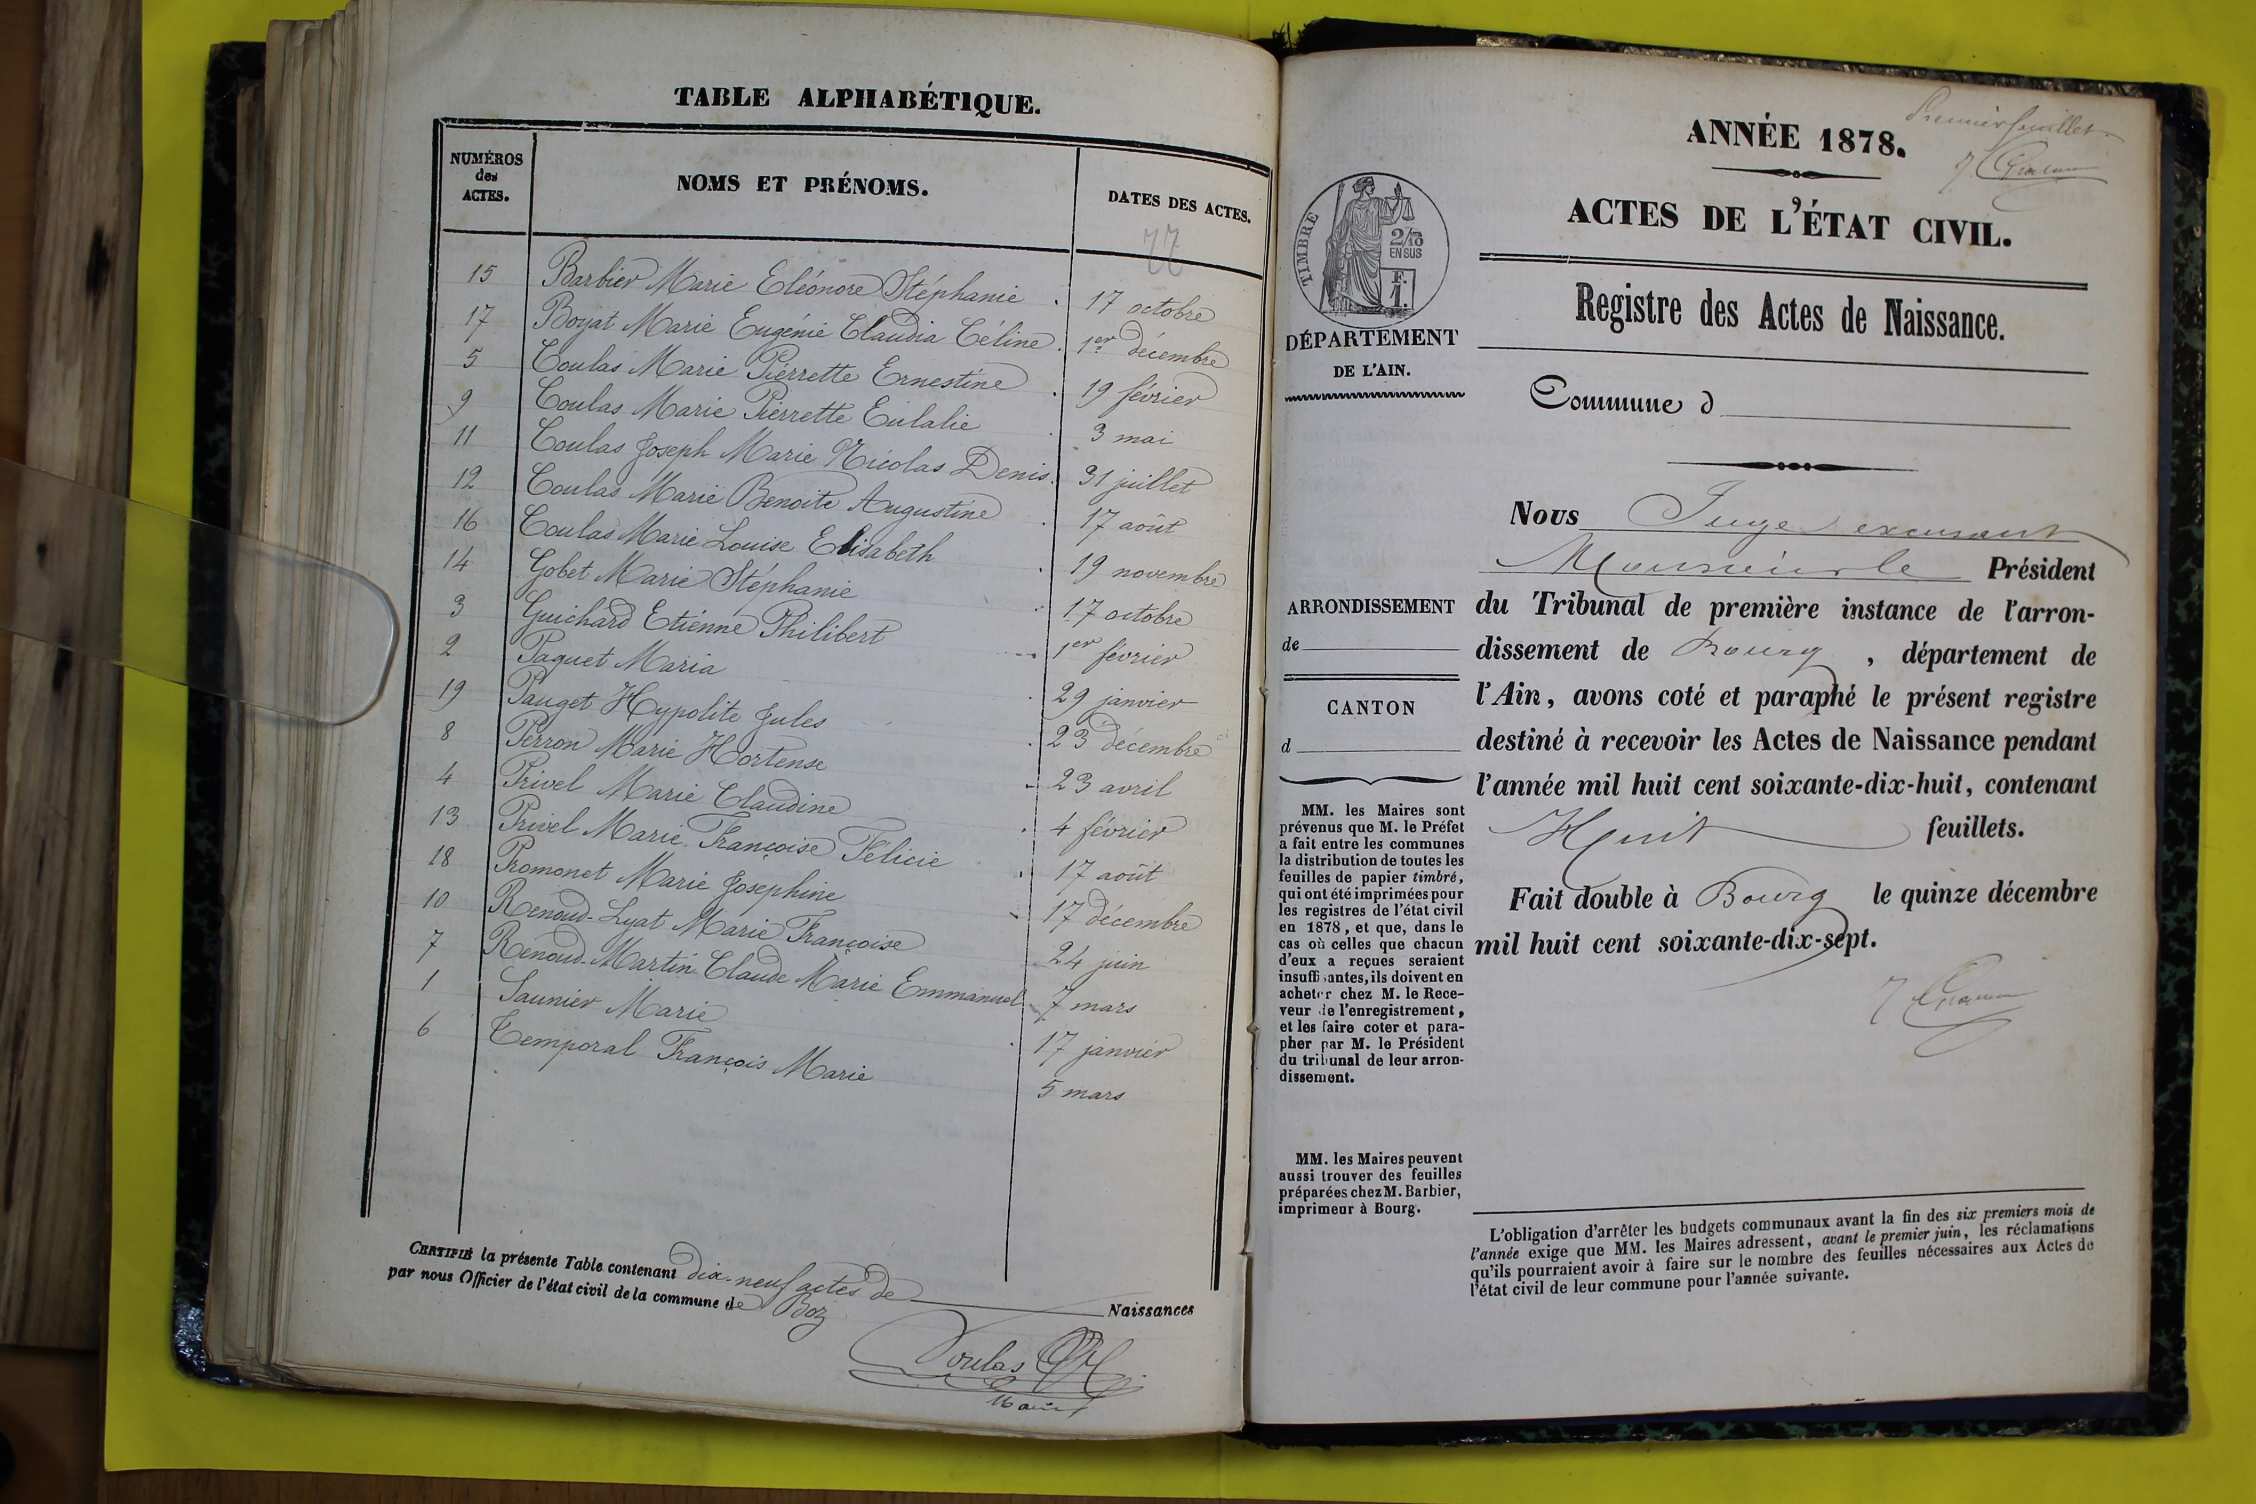 TABLE ALPHABÉTIQUE.
NUMÉROS
des
ACTES.
NOMS ET PRÉNOMS.
DATES DES ACTES.
77
15 Barbier Marie Eléonore Stéphanie 17 octobre
17 Boyat Marie Eugénie Claudia Céline 1er décembre
5 Coulas Marie Pierrette Ernestine 19 février
9 Coulas Marie Pierrette Eulalie 3 mai
11 Coulas Joseph Marie Nicolas Denis 31 juillet
12 Coulas Marie Benoite Augustine 17 août
16 Coulas Marie Louise Elisabeth 19 novembre
14 Gobet Marie Stéphanie 17 octobre
3 Guichard Etienne Philibert 1er février
2 Paquet Maria 29 janvier
19 Pauget Hypolite Jules 23 décembre
8 Perron Marie Hortense 23 avril
4 Privel Marie Claudine 4 février
13 Privel Marie Françoise Félicie 17 août
18 Promonet Marie Josephine 17 décembre
10 Renoud-Lyat Marie Françoise 24 juin
7 Renoud-Martin Claude Marie Emmanuel 7 mars
1 Saunier Marie 17 janvier
6 Temporal François Marie 5 mars
CERTIFIÉ la présente Table contenant dix-neuf actes de Naissances
par nous Officier de l'état civil de la commune de Boz
Coulas
Maire
Premier feuillet
ANNÉE 1878.
ACTES DE L'ÉTAT CIVIL.
TIMBRE
2/10
EN SUS
F.
1.
DÉPARTEMENT
DE L'AIN.
Registre des Actes de Naissance.
Commune d
Nous Juge excusant
Monsieur le Président
du Tribunal de première instance de l'arron-
dissement de Bourg, département de
l'Ain, avons coté et paraphé le présent registre
destiné à recevoir les Actes de Naissance pendant
l'année mil huit cent soixante-dix-huit, contenant
Huit feuillets.
Fait double à Bourg le quinze décembre
mil huit cent soixante-dix-sept.
ARRONDISSEMENT
de
CANTON
d
MM. les Maires sont
prévenus que M. le Préfet
a fait entre les communes
la distribution de toutes les
feuilles de papier timbré,
qui ont été imprimées pour
les registres de l'état civil
en 1878, et que, dans le
cas où celles que chacun
d'eux a reçues seraient
insuffisantes, ils doivent en
acheter chez M. le Rece-
veur de l'enregistrement,
et les faire coter et para-
pher par M. le Président
du tribunal de leur arron-
dissement.
MM. les Maires peuvent
aussi trouver des feuilles
préparées chez M. Barbier,
imprimeur à Bourg.
L'obligation d'arrêter les budgets communaux avant la fin des six premiers mois de
l'année exige que MM. les Maires adressent, avant le premier juin, les réclamations
qu'ils pourraient avoir à faire sur le nombre des feuilles nécessaires aux Actes de
l'état civil de leur commune pour l'année suivante.